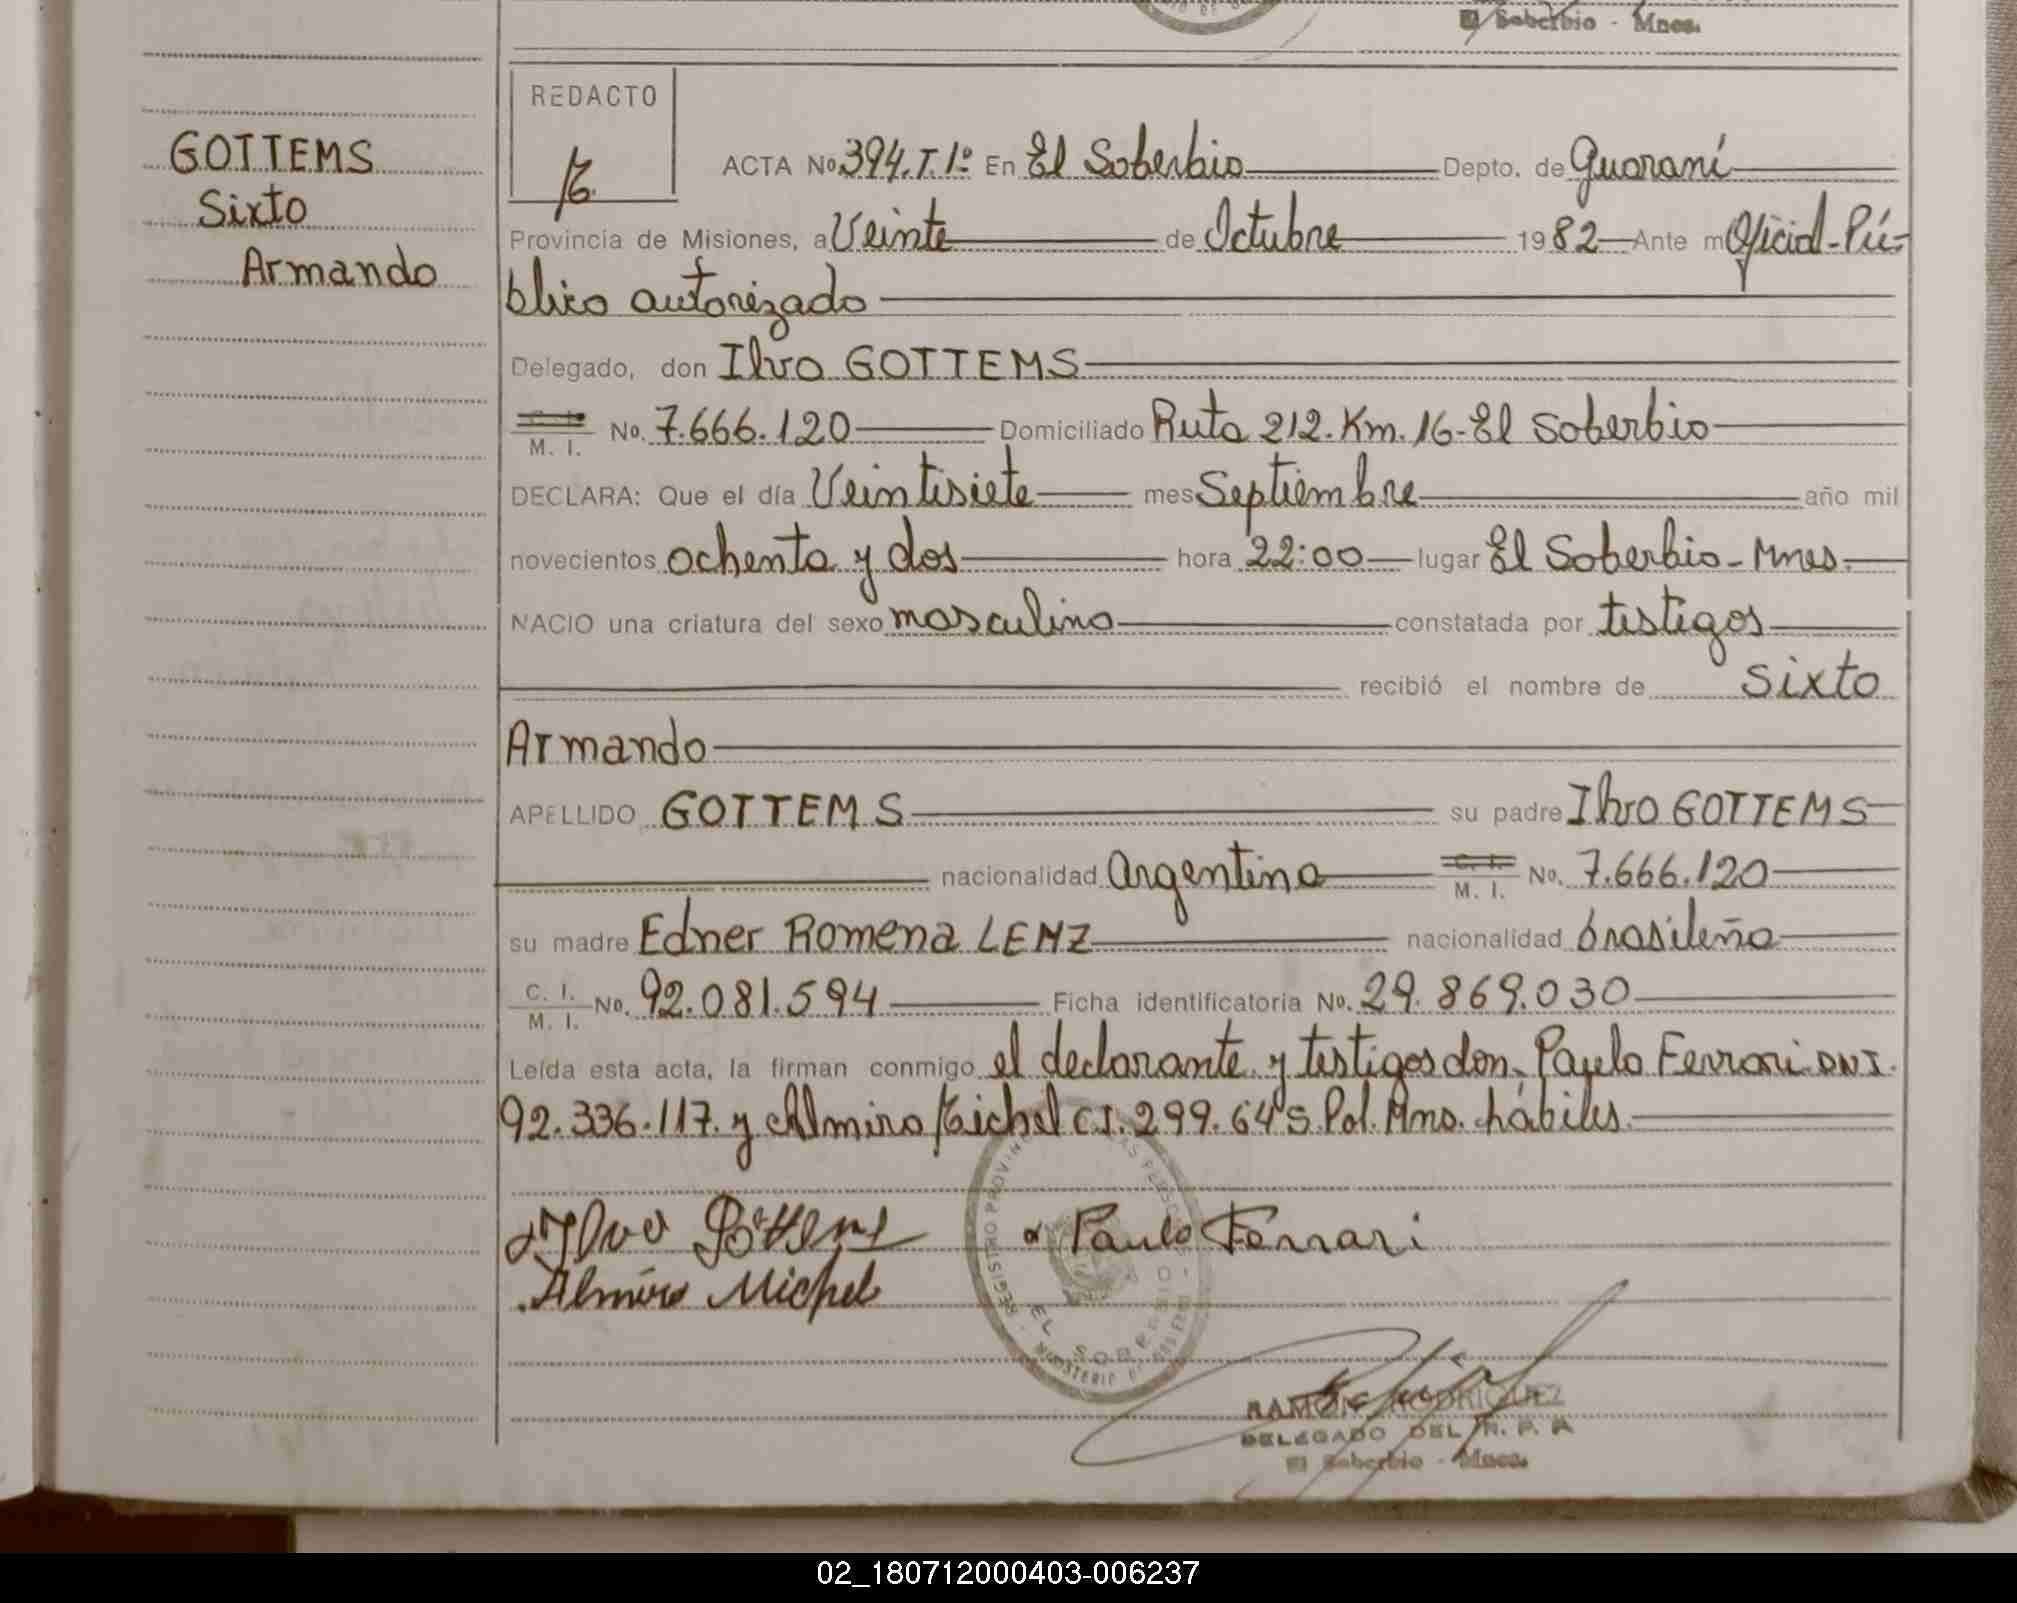 El Soberbio - Mnes.
REDACTO
GOTTEMS
Sixto
Armando
ACTA No. 394.T.1º En El Soberbio Depto. de Guaraní
Provincia de Misiones, a Veinte de Octubre 1982 Ante mí Oficial-Pú-
blico autorizado
Delegado, don Ilvo GOTTEMS
C. I.
M. I. No. 7.666.120 Domiciliado Ruta 212.Km.16-El Soberbio
DECLARA: Que el día Veintisiete mes Septiembre año mil
novecientos ochenta y dos hora 22:00 lugar El Soberbio-Mnes.
NACIO una criatura del sexo masculino constatada por testigos
recibió el nombre de Sixto
Armando
APELLIDO GOTTEMS su padre Ilvo GOTTEMS
nacionalidad Argentina C. I.
M. I. No. 7.666.120
su madre Edner Romena LENZ nacionalidad brasileña
C. I.
M. I. No. 92.081.594 Ficha identificatoria No. 29.869.030
Leída esta acta, la firman conmigo el declarante y testigos don Paulo Ferrari DNI.
92.336.117. y Almiro Michel C.I. 299.645 Pol. Mns. hábiles.
Ilvo Gottems Paulo Ferrari
Almiro Michel
REGISTRO PROVIN
EL SOBERBIO
MINISTERIO DE GOBIERNO
RAMON RODRIGUEZ
DELEGADO DEL R. P. P.
El Soberbio - Mnes.
02_180712000403-006237